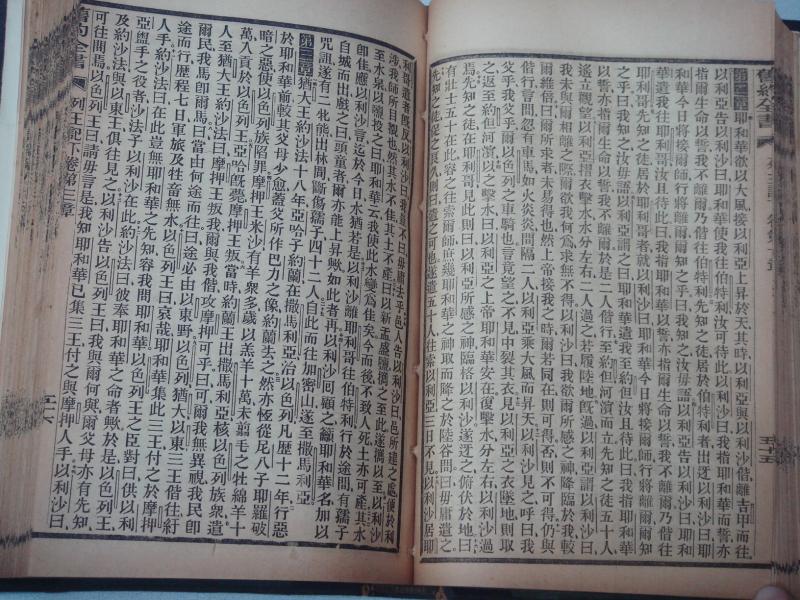 第二章耶和華欲以大風接以利亞上昇於天其時以利亞與以利沙偕離吉甲而往
以利亞告以利沙曰耶和華使我往伯特利汝可待此以利沙曰我指耶和華而誓亦
指爾生命以誓我不離爾乃偕往伯特利先知之徒居於伯特利者出迓以利沙曰耶
和華今日將接爾師行將離爾爾知之乎曰我知之汝毋譁以利亞告以利沙曰耶和
華遣我往耶利哥汝且待此曰我指耶和華以誓亦指爾生命以誓我不離爾乃偕往
耶利哥先知之徒居於耶利哥者就以利沙曰耶和華今日將接爾師行將離爾爾知
之乎曰我知之汝毋譁以利亞謂之曰耶和華遣我至約但汝且待此曰我指耶和華
以誓亦指爾生命以誓我不離爾於是二人偕行至約但河濱而立先知之徒五十人
遙立觀望以利亞摺衣擊水水分左右二人過之若履陸地旣過以利亞謂以利沙曰
我未與爾相離之際爾欲我何爲求無不得以利沙曰我欲爾所感之神降臨於我較
爾維倍曰爾所求者未易得也然上帝接我之時爾若同在則可得否則不可得仍與
偕行言間忽有車馬如火炎炎間隔二人以利亞乘大風而昇天以利沙見之呼曰我
父我父乎爾以色列之車騎也言竟望之不見中裂其衣見以利亞之衣墜地則取
之返至約但河濱以之擊水曰以利亞之上帝耶和華安在復擊水水分左右以利沙過
焉先知之徒在耶利哥見此則曰以利亞所感之神臨格以利沙遂迓之俯伏於地曰
有壯士五十在此容之往索爾師庶幾耶和華之神取而降之於陵谷間曰毋庸遣之
先知之徒促之久則曰遣之可也遂遣五十人往索以利亞三日不見以利沙居耶
舊約全書
五十五
利哥遣者旣反以利沙曰我豈不曰毋庸去乎邑人告以利沙曰邑所建之處便於利
涉我師所目覩也然其水不佳其土不產曰以新盂盛鹽攜之至此遂攜以至以利沙
至水泉以鹽投之曰耶和華云我使此水變爲佳矣今而後不致人死土亦可產其水
卽佳應以利沙言迄於今日水猶若是以利沙離耶利哥往伯特利行於途間有孺子
自城而出戲之曰頭童者爾亦能上昇歟如此者再以利沙回顧之籲耶和華名加以
咒詛遂有二牝熊出林間斷傷孺子四十二人自此而往加密山遂至撒馬利亞
第三章猶大王約沙法十八年亞哈子約蘭在撒馬利亞治以色列凡歷十二年行惡
於耶和華前較其父母少愈蓋父所作巴力之像約蘭去之然亦恆從尼八子耶羅破
暗之惡使以色列族陷罪摩押王米沙有羊衆多歲以羔羊十萬未翦毛之牡綿羊十
萬入貢於以色列王亞哈旣薨摩押王叛當時約蘭王出撒馬利亞核以色列族衆遣
人至猶大王約沙法曰摩押王叛我爾與我偕攻摩押可乎曰可爾我無異視我民卽
爾民我馬卽爾馬曰當由何途而往曰途必由以東野以色列猶大以東三王偕往紆
途而行歷程七日軍旅及牲畜無水以色列王曰哀哉耶和華集此三王付之於摩押
人手約沙法曰在此豈無耶和華之先知容我問耶和華以色列王之臣對曰供以利
亞盥手之役者沙法子以利沙在此約沙法曰彼奉耶和華之命者歟於是以色列王
及約沙法與以東王俱往見之以利沙告以色列王曰我與爾何與爾父母亦有先知
可往問焉以色列王曰請毋言是我知耶和華已集三王付之與摩押人手以利沙曰
舊約全書
列王紀下卷第三章
五十六